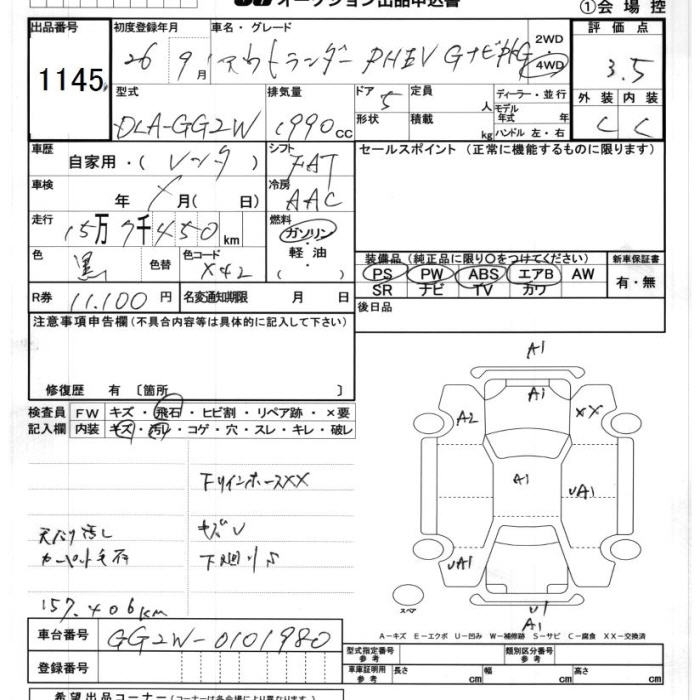 オークション出品申込書
①会場控
出品番号
1145
初度登録年月
26 9月
車名・グレード
アウトランダー PHEV GナビPKG
2WD
4WD
評価点
3.5
型式
DLA-GG2W
排気量
1990cc
ドア 5
形状
定員 人
積載 kg
ディーラー・並行
モデル年式 年
ハンドル 左・右
外装 内装
C C
車歴
自家用・( レンタ )
シフト
FAT
セールスポイント (正常に機能するものに限ります)
車検
年 月( 日)
冷房
AAC
走行
15万7千450km
燃料
ガソリン
軽・油
( ・ )
色
黒
色替
色コード
X42
装備品 (純正品に限り○をつけてください)
PS PW ABS エアB AW
SR ナビ TV カワ
新車保証書
有・無
R券
11,100円
名変通知期限 月 日
後日品
注意事項申告欄 (不具合内容等は具体的に記入して下さい)
修復歴 有 〔箇所 〕
検査員記入欄
FW キズ・飛石・ヒビ割・リペア跡・×要
内装 キズ・汚レ・コゲ・穴・スレ・キレ・破レ
FリインホースXX
天張り汚し
キズV
下廻りS
157,406km
A1
A1
A2
XX
A1
UA1
UA1
U1
A1
スペア
A-キズ E-エクボ U-凹み W-補修跡 S-サビ C-腐食 XX-交換済
車台番号
GG2W-0101980
登録番号
型式指定番号 参考
類別区分番号 参考
車庫証明用 参考
長さ cm
幅 cm
高さ cm
希望出品コーナー
(コーナーは各会場により異なります)